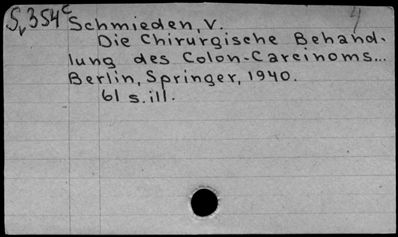 Sv354c Schmieden, V. 4
Die Chirurgische Behand-
lung des Colon-Carcinoms...
Berlin, Springer, 1940.
61 s. ill.